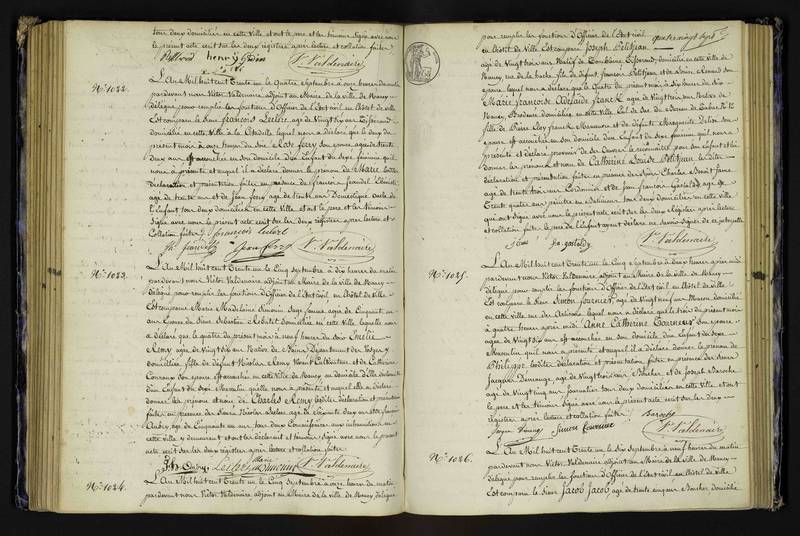 tous deux domiciliés en cette Ville et ont le pere et les témoins Signé avec nous
le présent acte écrit sur les deux régistres après lecture et collation faites
henry
Vr Valdenaire
No. 1022.
L'An Mil huit cent Trente un le Quatre Septembre à onze heures du matin
pardevant nous Victor Valdenaire adjoint au Maire de la ville de Nancy
délégué pour remplir les fonctions d'Officier de l'Etat civil en l'hôtel de ville
Est comparu le Sieur François Leclerc agé de Vingt six ans
domicilié en cette Ville à la Citadelle lequel nous a déclaré que le deux du
présent mois à onze heures du soir Rose ferry son épouse agée de trente
deux ans est accouchée en son domicile d'un Enfant du sexe féminin qu'il
nous a présenté et auquel il a déclaré donner le prénom de Marie
déclaration et présentation faites en présence de françois
agé de trente ans et de Jean ferry agé de trente ans Domestique oncle de
l'Enfant tous deux domiciliés en cette Ville et ont le pere et les témoins
Signé avec nous le présent acte écrit sur les deux régistres après lecture et
Collation faites françois leclerc
Jean ferry Vr Valdenaire
No. 1023.
L'An Mil huit cent Trente un le Cinq Septembre à dix heures du matin
pardevant nous Victor Valdenaire adjoint au Maire de la ville de Nancy
délégué pour remplir les fonctions d'Officier de l'Etat civil en l'hôtel de Ville
Est comparue Marie Madelaine Simonin Sage femme agée de Cinquante
ans Epouse du Sieur Sébastien domiciliée en cette Ville laquelle nous
a déclaré que le quatre du présent mois à neuf heures du soir Emélie
Remy agée de Vingt six ans Native de Département des Vosges y
domiciliée fille de défunt Nicolas Remy Cultivateur et de Catherine
est accouchée en cette Ville de Nancy au domicile d'elle déclarante
d'un Enfant du sexe Masculin qu'elle nous a présenté et auquel elle a déclaré
donner les prénom et nom de Charles Remy ladite déclaration et présentation
faites en présence des Sieurs Nicolas Leclerc agé de Soixante deux ans et de
Aubry agé de Cinquante un ans tous deux
cette ville y demeurant et ont les déclarante et témoins Signé avec nous le présent
acte écrit sur les deux régistres après lecture et collation faites
Aubry Leclerc Marie Simonin Vr Valdenaire
No. 1024.
L'An Mil huit cent Trente un le Cinq Septembre à onze heures du matin
pardevant nous Victor Valdenaire adjoint au Maire de la ville de Nancy délégué
quatre vingt sept
pour remplir les fonctions d'Officier de l'Etat civil
en l'hôtel de Ville Est comparu Joseph Petitjean
agé de Vingt trois ans Natif de domicilié en cette Ville de
Nancy, rue de la fils de défunt francois Petitjean et de
épouse lequel nous a déclaré que le Quatre du présent mois à dix heures du soir
Marie francoise Adelaïde franck agée de Vingt trois ans Native de
Nancy, Brodeuse domiciliée en cette Ville
fille de Pierre Eloy franck Manœuvre et de défunte Marguerite son
épouse est accouchée en son domicile d'un Enfant du sexe féminin qu'il nous a
présenté et déclaré provenir de ses œuvres le reconnaître pour son Enfant et lui
donner les prénoms et nom de Catherine Louise Petitjean la dite
déclaration et présentation faites en présence des Sieurs Charles
agé de trente trois ans Cordonnier et de Jean francois Gastaldy agé de
Trente quatre ans peintre en Batimens tous deux domiciliés en cette Ville
qui ont Signé avec nous le présent acte écrit sur les deux Régistres après lecture
et collation faites, le pere de l'Enfant ayant déclaré ne savoir Signer
j.f. gastaldy Vr Valdenaire
No. 1025.
L'An Mil huit cent Trente un le Cinq Septembre à deux heures après midi
pardevant nous Victor Valdenaire adjoint au Maire de la ville de Nancy
délégué pour remplir les fonctions d'Officier de l'Etat civil en l'hôtel de Ville
Est comparu le Sieur Simon fourneur agé de Vingt neuf ans Maçon domicilié
en cette Ville rue des Artisans lequel nous a déclaré que le trois du présent mois
à quatre heures après midi Anne Catherine Tourneur son épouse
agée de Vingt six ans est accouchée en son domicile d'un Enfant du sexe
Masculin qu'il nous a présenté et auquel il a déclaré donner le prénom de
Philippe ladite déclaration et présentation faites en présence des Sieurs
Jacques agé de Vingt trois ans Boucher et de Joseph Baroche
agé de Vingt cinq ans tous deux domiciliés en cette Ville et ont
le pere et les témoins Signé avec nous le présent acte écrit sur les deux
régistres après lecture et collation faites Baroche
Simon Vr Valdenaire
No. 1026.
L'An Mil huit cent Trente un le Six Septembre à neuf heures du matin
pardevant nous Victor Valdenaire adjoint au Maire de la ville de Nancy
délégué pour remplir les fonctions d'Officier de l'Etat civil en l'hôtel de Ville
Est comparu le Sieur Jacob Jacob agé de trente cinq ans Boucher domicilié